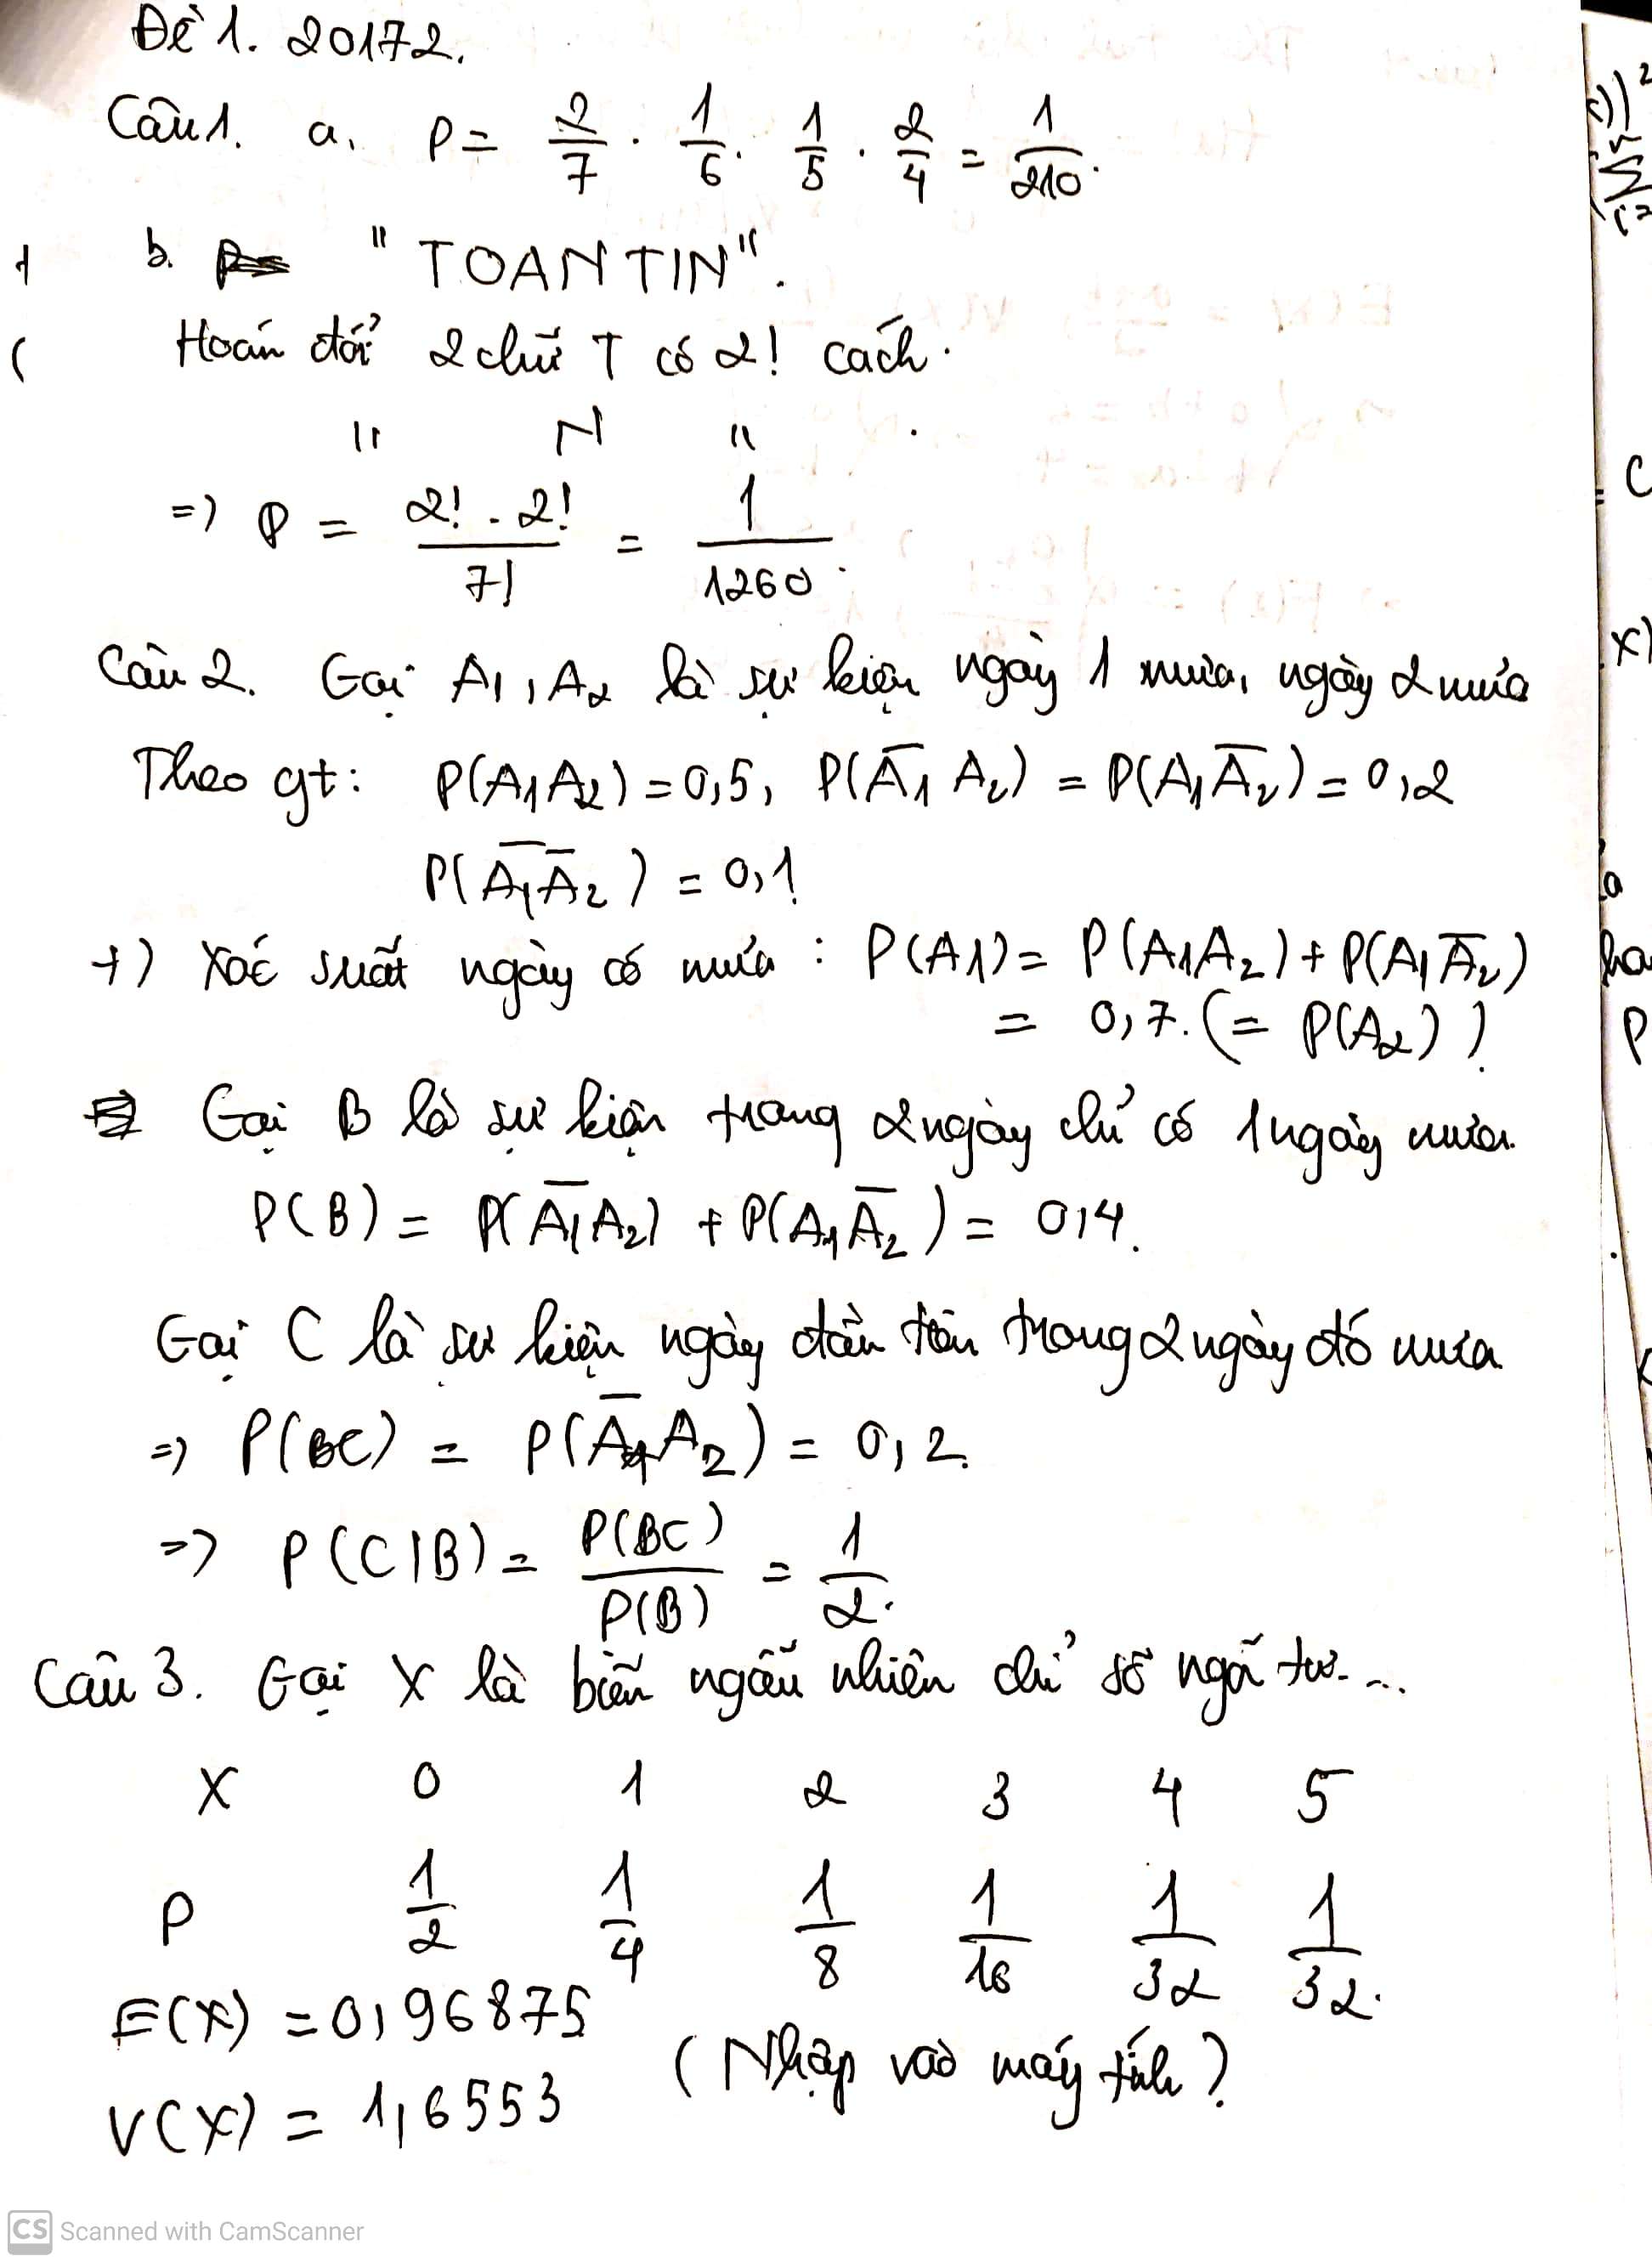 Đề 1. 20172.
Câu 1. a, P = 2/7 . 1/6 . 1/5 . 2/4 = 1/210.
b. "TOANTIN".
Hoán đổi 2 chữ T có 2! cách.
" N " .
=> P = 2! . 2! / 7! = 1/1260.
Câu 2. Gọi A1, A2 là sự kiện ngày 1 mưa, ngày 2 mưa
Theo gt: P(A1A2) = 0,5, P(A̅1 A2) = P(A1A̅2) = 0,2
P(A̅1A̅2) = 0,1
+) Xác suất ngày có mưa : P(A1) = P(A1A2) + P(A1A̅2)
= 0,7. (= P(A2))
Gọi B là sự kiện trong 2 ngày chỉ có 1 ngày mưa.
P(B) = P(A̅1A2) + P(A1A̅2) = 0,4.
Gọi C là sự kiện ngày đầu tiên trong 2 ngày đó mưa
=> P(BC) = P(A̅1A2) = 0,2.
=> P(C|B) = P(BC)/P(B) = 1/2.
Câu 3. Gọi X là biến ngẫu nhiên chỉ số ngã tư...
X 0 1 2 3 4 5
P 1/2 1/4 1/8 1/16 1/32 1/32.
E(X) = 0,96875
(Nhập vào máy tính)
V(X) = 1,6553
CS Scanned with CamScanner